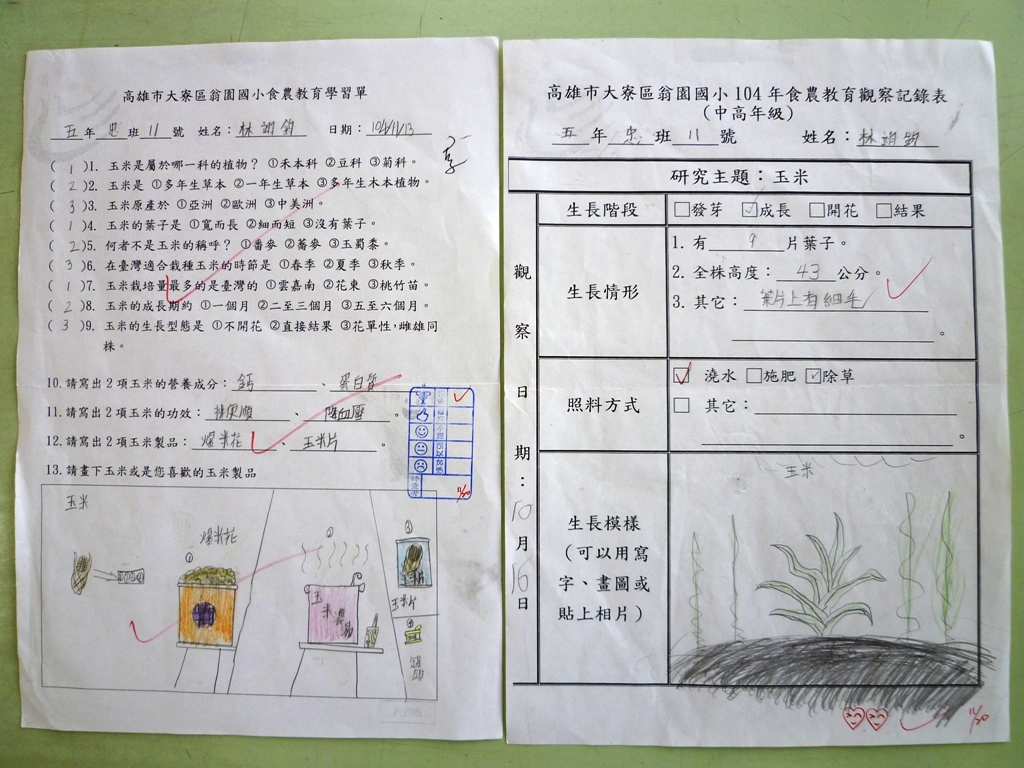 高雄市大寮區翁園國小食農教育學習單
五年忠班11號 姓名：林翊鈞 日期：104/11/13
(1)1. 玉米是屬於哪一科的植物？ ①禾本科 ②豆科 ③菊科。
(2)2. 玉米是 ①多年生草本 ②一年生草本 ③多年生木本植物。
(3)3. 玉米原產於 ①亞洲 ②歐洲 ③中美洲。
(1)4. 玉米的葉子是 ①寬而長 ②細而短 ③沒有葉子。
(2)5. 何者不是玉米的稱呼？ ①番麥 ②蕎麥 ③玉蜀黍。
(3)6. 在臺灣適合栽種玉米的時節是 ①春季 ②夏季 ③秋季。
(1)7. 玉米栽培量最多的是臺灣的 ①雲嘉南 ②花東 ③桃竹苗。
(2)8. 玉米的成長期約 ①一個月 ②二至三個月 ③五至六個月。
(3)9. 玉米的生長型態是 ①不開花 ②直接結果 ③花單性，雌雄同
株。
10. 請寫出2項玉米的營養成分：鈣、蛋白質
11. 請寫出2項玉米的功效：排便順、降血壓。
12. 請寫出2項玉米製品：爆米花、玉米片。
13. 請畫下玉米或是您喜歡的玉米製品
玉米
爆米花
①
②
玉米濃湯
③
玉米片
④
11/20
高雄市大寮區翁園國小104年食農教育觀察記錄表
（中高年級）
五年忠班11號 姓名：林翊鈞
研究主題：玉米
觀察日期：10月16日
生長階段 □發芽 ☑成長 □開花 □結果
生長情形
1. 有9片葉子。
2. 全株高度：43公分。
3. 其它：葉片上有細毛
。
照料方式
☑ 澆水 □施肥 ☑除草
□ 其它：
。
生長模樣
（可以用寫
字、畫圖或
貼上相片）
玉米
11/20